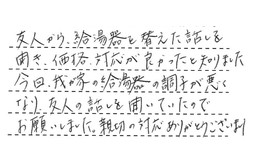 友人から、給湯器を替えた話しを
聞き、価格、対応が良かったと知りました
今回、我が家の給湯器の調子が悪く
なり、友人の話しを聞いていたので
お願いしました。親切の対応ありがとうございます